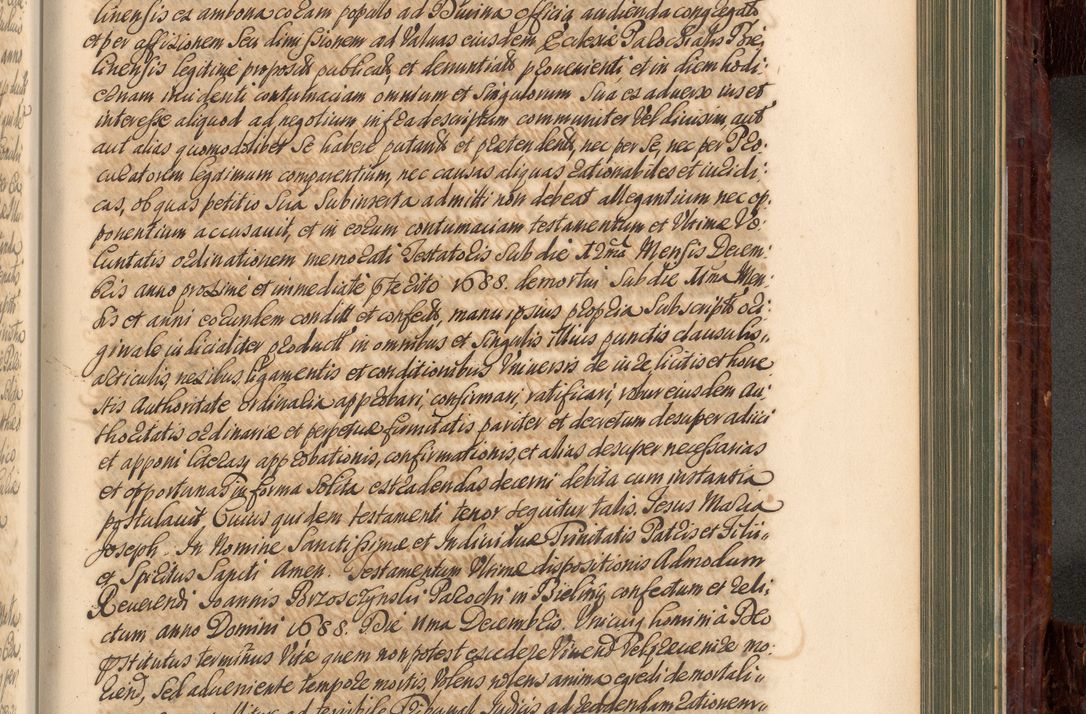 linensis ex ambona coram populo ad Divina officia audienda congregato
et per affixionem seu dimissionem ad Valuas eiusdem Ecclesiæ Parochialis Bie
linensis legitime proposit publicat et denuntiat provenienti et in diem hodi-
ernam incidenti contumaciam omnium et singulorum sua ex adverso ius et
interesse aliquod ad negotium infrascriptum communiter vel divisim, aut
aut alias quomodolibet se habere putant et prætendent, nec per se, nec per Pro
curatorem legitimum comparentium, nec causas aliquas rationabiles et iuridi-
cas, ob quas petitio sua subinserta admitti non debeat allegantium nec op-
ponentium accusavit, et in eorum contumaciam testamentum et Ultimæ Vo-
luntatis ordinationem memorati Testatoris sub die 12ma Mensis Decem-
bris anno proxime et immediate pterito 1688. demortui sub die 11ma Men-
sis et anni eorundem condit et confect, manu ipsius propria subscript ori-
ginale iudicialiter product in omnibus et singulis illius punctis clausulis,
articulis, nexibus, ligamentis et conditionibus Universis de iure licitis et hone
stis Authoritate ordinaria approbari, confirmari, ratificari, robur eiusdem Au-
thoritatis ordinariæ et perpetuæ firmitatis pariter et decretum desuper adiici
et apponi literasq approbationis, confirmationis, et alias desuper necessarias
et opportunas in forma solita extradendas decerni debita cum instantia
postulavit, Cuius quidem testamenti tenor sequitur talis. Iesus Maria
Joseph. In Nomine Sanctissimæ et Individuæ Trinitatis Patris et Filii
et Spiritus Sancti Amen. Testamentum Ultimæ dispositionis Admodum
Reverendi Ioannis Parochi in Bieliny confectum et reli-
ctum anno Domini 1688. Die 11ma Decembris. Unicuiq homini à Deo
pstitutus terminus Vitæ quem non potest excedere Vivend Velq brevenire mo-
riend, Sed adveniente tempore mortis, Volens nolens anima egredi de mortali
tribunal Iudicis ad reddendam rationem